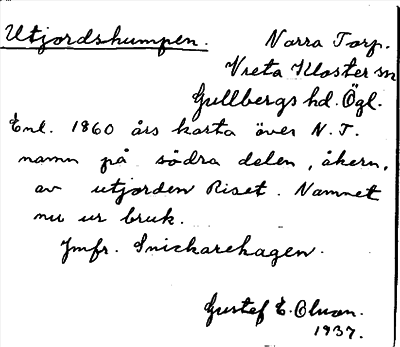 Utjordshumpen.
Norra Torp.
Vreta Kloster sn
Gullbergs hd. Ögl.
Enl. 1860 års karta över N.T.
namn på södra delen, åkern,
av utjorden Riset. Namnet
nu ur bruk.
Jmfr. Snickarehagen.
Gustef E. Olsson.
1937.